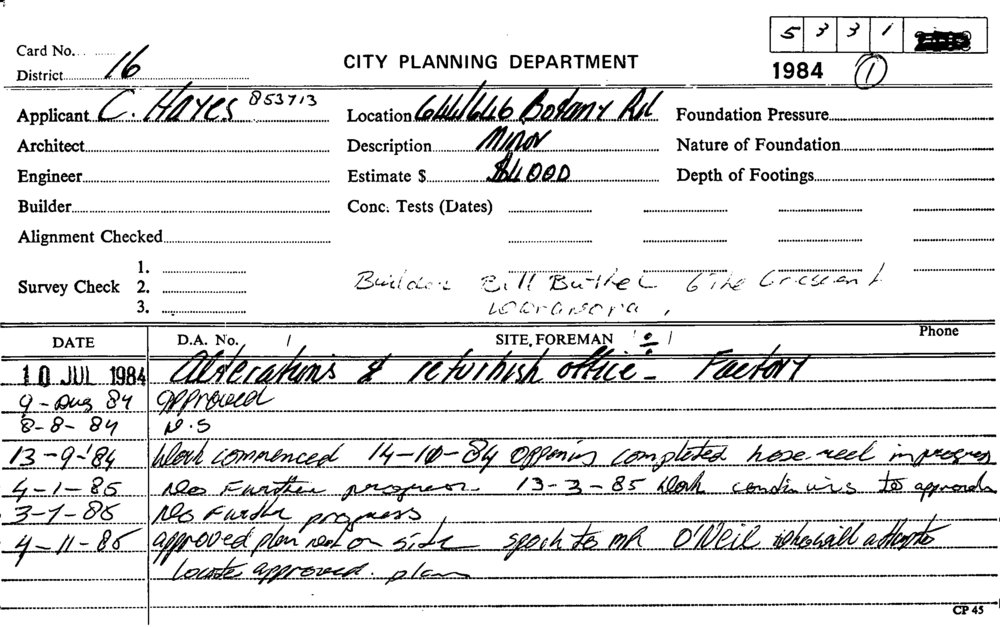 5 3 3 1
Card No.
District 16
CITY PLANNING DEPARTMENT
1984 1
Applicant C. Hayes 853713
Location 644/646 Botany Rd
Foundation Pressure
Architect
Description Minor
Nature of Foundation
Engineer
Estimate $ $4000
Depth of Footings
Builder
Conc. Tests (Dates)
Alignment Checked
Survey Check 1.
2.
3.
Builder Bill The Crescent
DATE D.A. No. / SITE, FOREMAN Phone
10 JUL 1984 Alterations & refurbish office - Factory
9 - Aug 84 approved
8-8-84 N.S
13-9-'84 Work commenced 14-10-84 completed hose reel in progress
4-1-85 No Further progress. 13-3-85 Work to
3-7-85 No Further progress
4-11-85 approved plan not on site to MR O'Neil who will attempt to
locate approved plan
CP 45